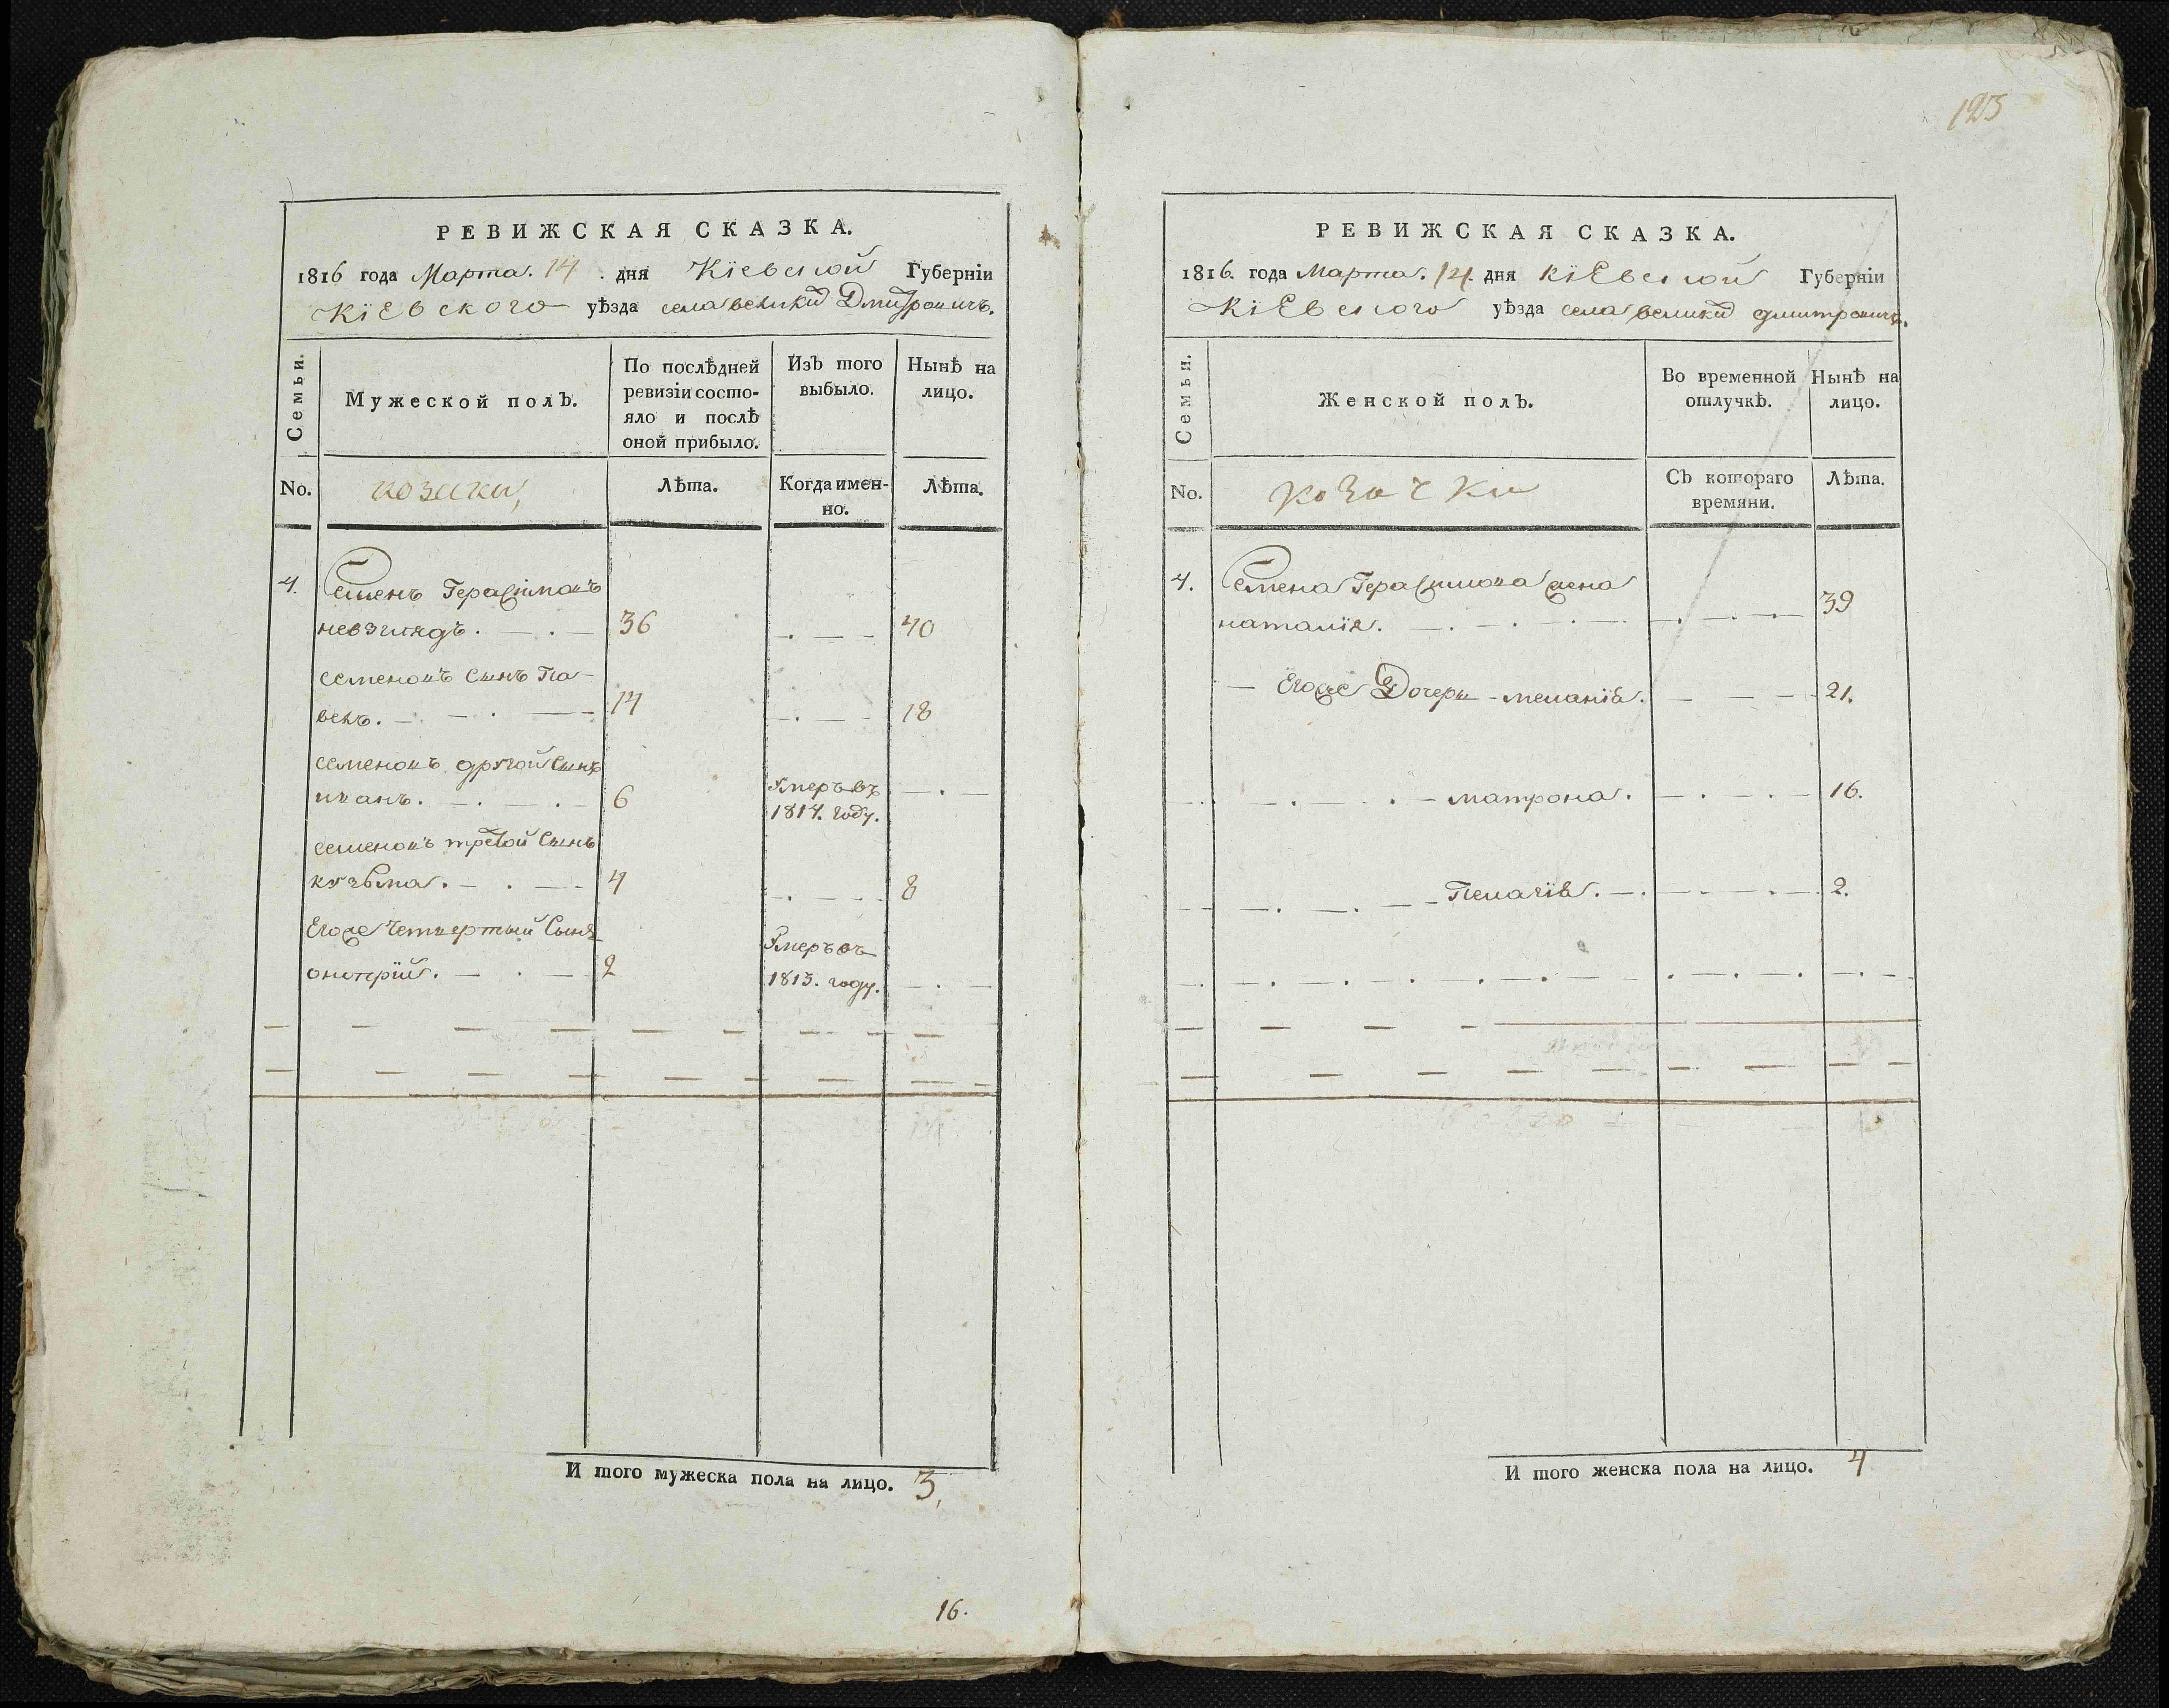 РЕВИЖСКАЯ СКАЗКА.
1816 года Марта. 14. дня Кіевской Губерніи
Кіевского уѣзда села великихъ Дмитровичъ.
Семьи.
Мужеской полъ.
По послѣдней
ревизіи состо-
яло и послѣ
оной прибыло.
Изъ того
выбыло.
Нынѣ на
лицо.
No.
козаки,
Лѣта.
Когда имен-
но.
Лѣта.
4. Семенъ Герасимовъ
невзглядъ. 36 40
семеновъ Сынъ Па-
велъ. 14 18
семеновъ другой Сынъ
иванъ. 6 Умеръ въ
1814. году.
семеновъ третой Сынъ
кузьма. 4 8
Егоже Четвертый Сынъ
2 Умеръ въ
1813. году.
И того мужеска пола на лицо. 3,
16.
123
РЕВИЖСКАЯ СКАЗКА.
1816 года Марта. 14. дня Кіевской Губерніи
Кіевского уѣзда села великихъ дмитровичъ.
Семьи.
Женской полъ.
Во временной
отлучкѣ.
Нынѣ на
лицо.
No.
козачки
Съ котораго
времяни.
Лѣта.
4. Семена Герасимова жена
наталія. 39
Егоже Дочери - меланія. 21.
матрона. 16.
Пелагія. 2.
И того женска пола на лицо. 4